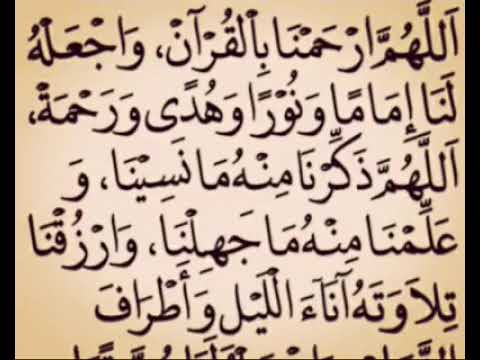 اَللَّهُمَّ ارْحَمْنَا بِالْقُرْآنِ، وَاجْعَلْهُ
لَنَا إِمَامًا وَنُوْرًا وَهُدًى وَرَحْمَةً،
اَللَّهُمَّ ذَكِّرْنَا مِنْهُ مَا نَسِيْنَا، وَ
عَلِّمْنَا مِنْهُ مَا جَهِلْنَا، وَارْزُقْنَا
تِلَاوَتَهُ آنَاءَ اللَّيْلِ وَأَطْرَافَ